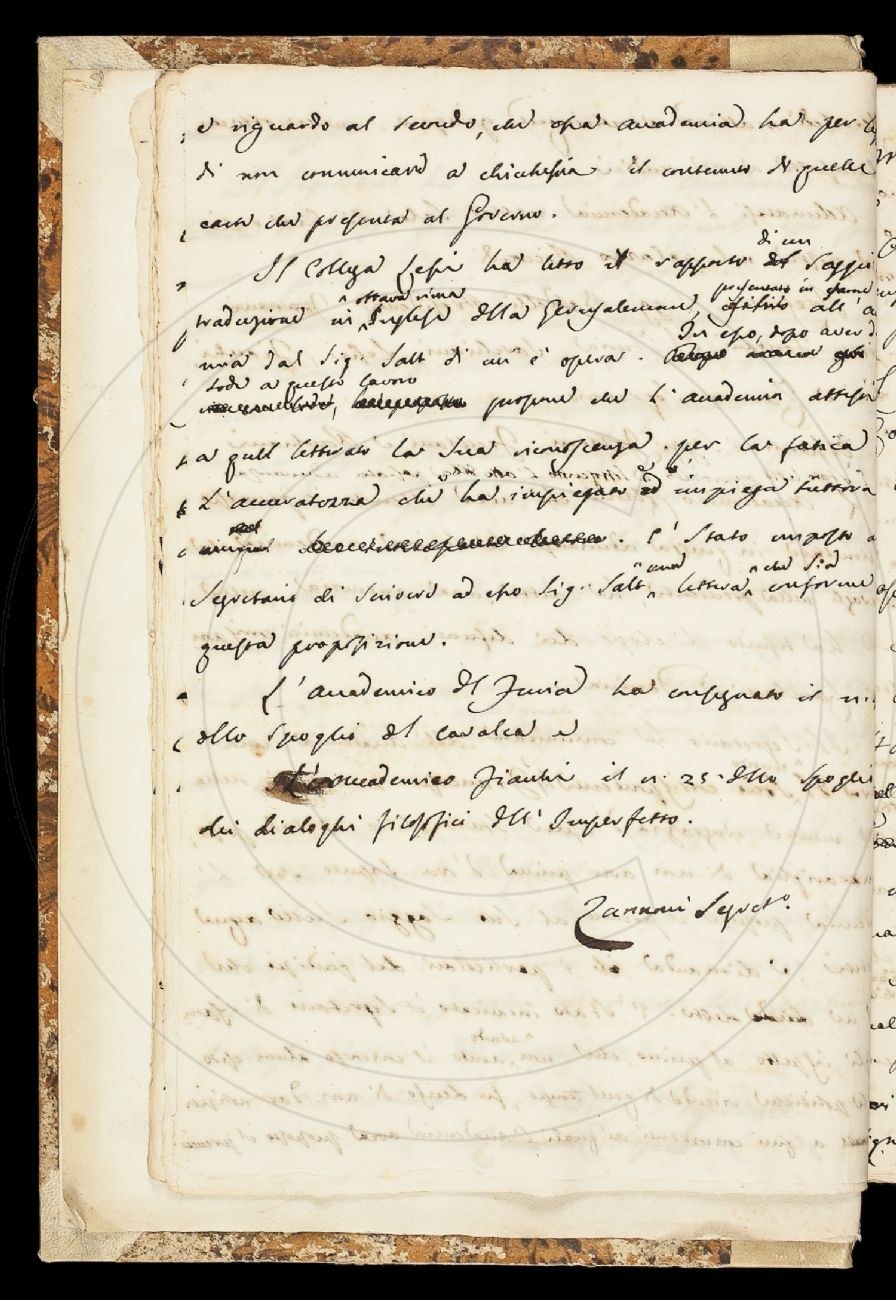 e riguardo al secondo, che essa Accademia ha per
di non comunicare a chichessia il contenuto di quelle
carte che presenta al Governo.
Il Collega Lessi ha letto il rapporto di un Saggio
traduzione in ottava rima Inglese della Gerusalemme, presentato in esame all'
mia dal Sig. Salt di cui è opera. In esso, dopo aver
lode a questo lavoro propone che l'Accademia attesti
a quel letterato la sua riconoscenza per la fatica
L'accuratezza che ha impiegato ed impiega tuttora
. È stato imposto a
Segretario di scivere ad esso Sig. Salt una lettera che sia conforme
questa proposizione.
L'Accademico del Furia ha consegnato il n.
dello spoglio del Cavalca e
L'accademico Fiacchi il n. 25. dello spoglio
dei dialoghi filosofici dell'Imperfetto.
Zannoni Segret.º